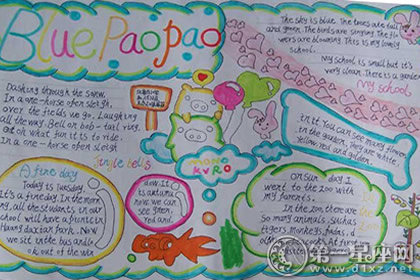 Blue Paopao
Dashing through the snow,
In a one-horse open sleigh,
O'er the fields we go, Laughing
all the way. Bell on bob-tail ring.
oh what fun it is to ride
In a one-horse open sleigh
jingle bells
The sky is blue. The trees are tall
and green. The birds are singing. The flo
wers are blooming. This is my lovely
school.
My school is small but it's
very clean. There is a garden
My school
in it. You can see many flowers
in the garden, they are white
yellow, red and golden.
A fine day
Today is Tuesday.
It's a fine day. In the morn
all the students in our
school will take a funtrip
Huang daxian park. Now
we sit in the bus and lo
ok out of the win
now. It
is autumn
now. we can
see green,
red and
mono
KURO
On Sunday I
went to the zoo with
my parents.
In the zoo, there are
So many animals, such as
tigers, monkeys, pandas,
第一星座网
www.d1xz.net